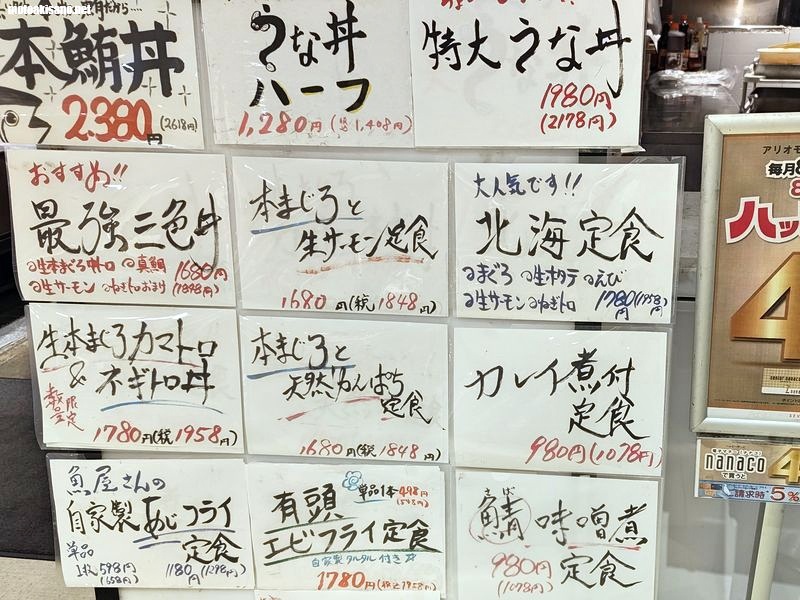 本鮪丼
2.380円(2618円)
うな丼
ハーフ
1,280円(税1,408円)
特大うな丼
1980円
(2178円)
おすすめ!!
最強三色丼
生本まぐろ中トロ 真鯛 1680円
生サーモン ねぎトロ (1848円)
本まぐろと
生サーモン定食
1680円(税1848円)
大人気です!!
北海定食
まぐろ 生ホタテ えび
生サーモン ねぎトロ 1780円(1958円)
生本まぐろカマトロ
& ネギトロ丼
数量限定
1780円(税1958円)
本まぐろと
天然かんぱち
定食
1680円(税1848円)
カレイ煮付
定食
980円(1078円)
魚屋さんの
自家製あじフライ
定食
単品
1枚598円
(658円)
1180円(1298円)
有頭
単品1本498円
(548円)
エビフライ定食
自家製タルタル付き
1780円(税込1958円)
さば
鯖味噌煮
定食
980円
(1078円)
アリオモ
毎月8
ハッ
4
nanaco
で買うと
請求時5%